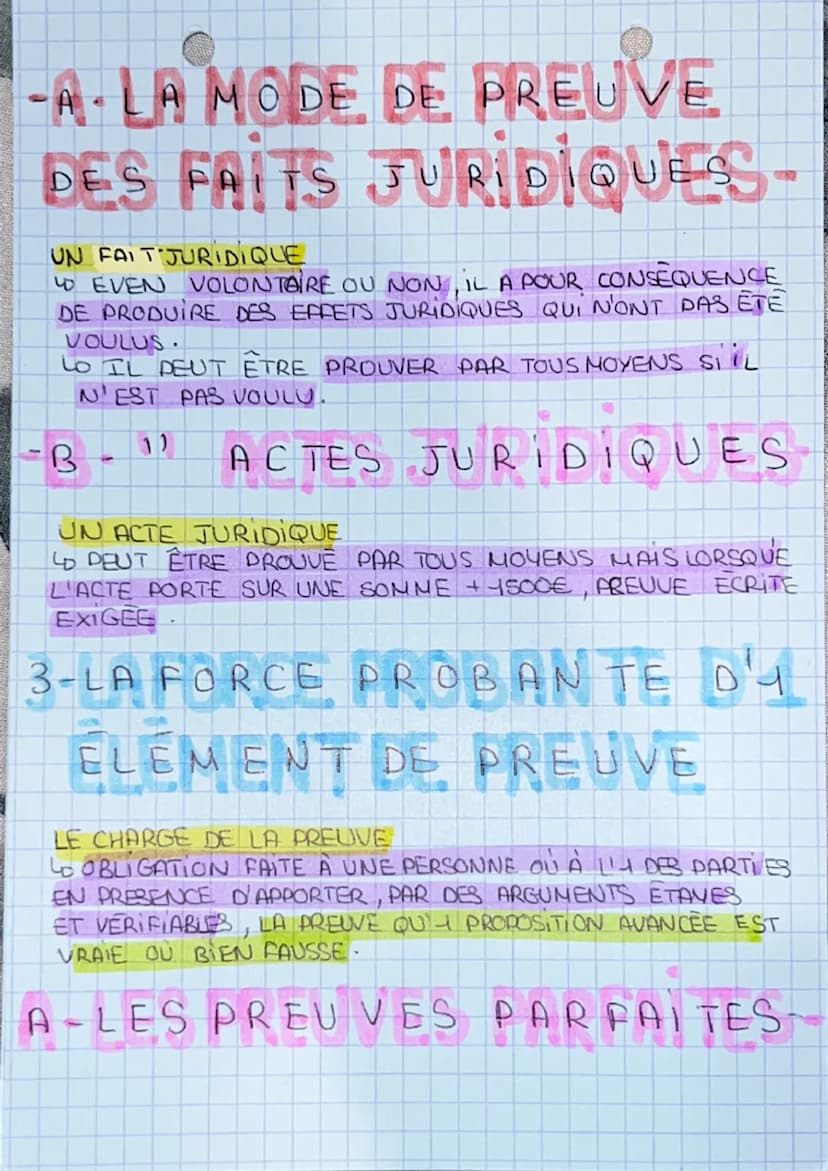 -A. LA MODE DE PREUVE
DES FAITS JURIDIQUES-
UN FAIT JURIDIQUE
↳ EVEN VOLONTAIRE OU NON, IL A POUR CONSÉQUENCE
DE PRODUIRE DES EFFETS JURIDIQUES QUI N'ONT PAS ÉTÉ
VOULUS.
↳ IL PEUT ÊTRE PROUVER PAR TOUS MOYENS SI IL
N'EST PAS VOULU.
-B - " ACTES JURIDIQUES
UN ACTE JURIDIQUE
↳ PEUT ÊTRE PROUVÉ PAR TOUS MOYENS MAIS LORSQUE
L'ACTE PORTE SUR UNE SOMME + 1500€, PREUVE ÉCRITE
EXIGÉE.
3-LA FORCE PROBANTE D'1
ÉLÉMENT DE PREUVE
LE CHARGE DE LA PREUVE
↳ OBLIGATION FAITE À UNE PERSONNE OÙ À L'1 DES PARTIES
EN PRÉSENCE D'APPORTER, PAR DES ARGUMENTS ÉTAYÉS
ET VÉRIFIABLES, LA PREUVE QU'1 PROPOSITION AVANCÉE EST
VRAIE OU BIEN FAUSSE.
A-LES PREUVES PARFAITES-